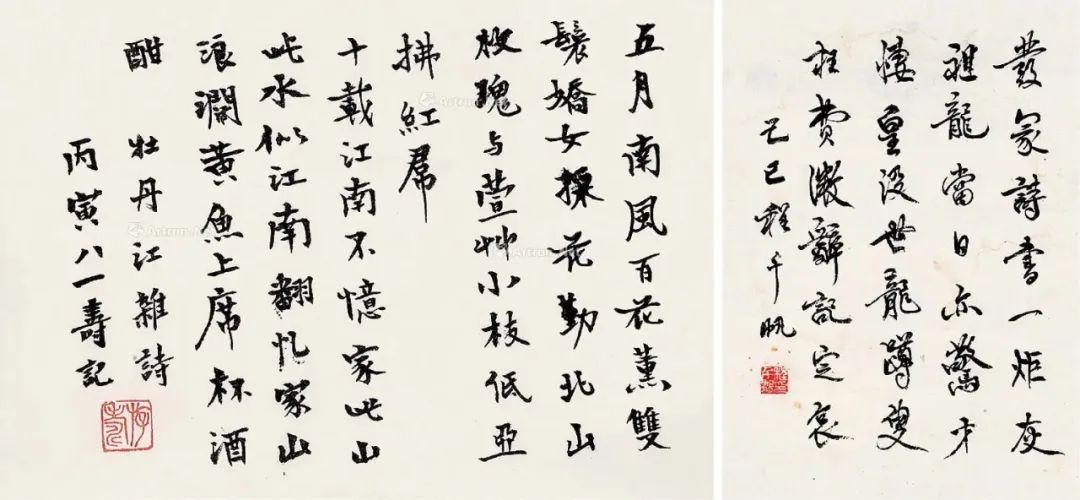 五月南風百花薰雙
鬟嬌女採花勤北山
玫瑰与萱艸小枝低亞
拂紅帬
十載江南不憶家此山
此水似江南翻忆家山
浪濶黃魚上席杯酒
酣 牡丹江雜詩
丙寅八一壽記
發冢詩書一炬灰
祖龍當日亦驚才
悽皇没世龍蹲叟
枉費微辭記定哀
己巳程千帆